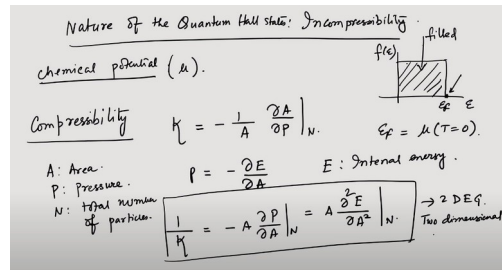 Nature of the Quantum Hall state: Incompressibility.
chemical potential (μ).
filled
f(ε)
εf
ε
εf = μ(T=0).
Compressibility
K = - 1/A ∂A/∂P |N.
A: Area.
P: Pressure.
N: total number of particles.
P = - ∂E/∂A
E: Internal energy.
1/K = - A ∂P/∂A |N = A ∂²E/∂A² |N.
→ 2DEG.
Two dimensional